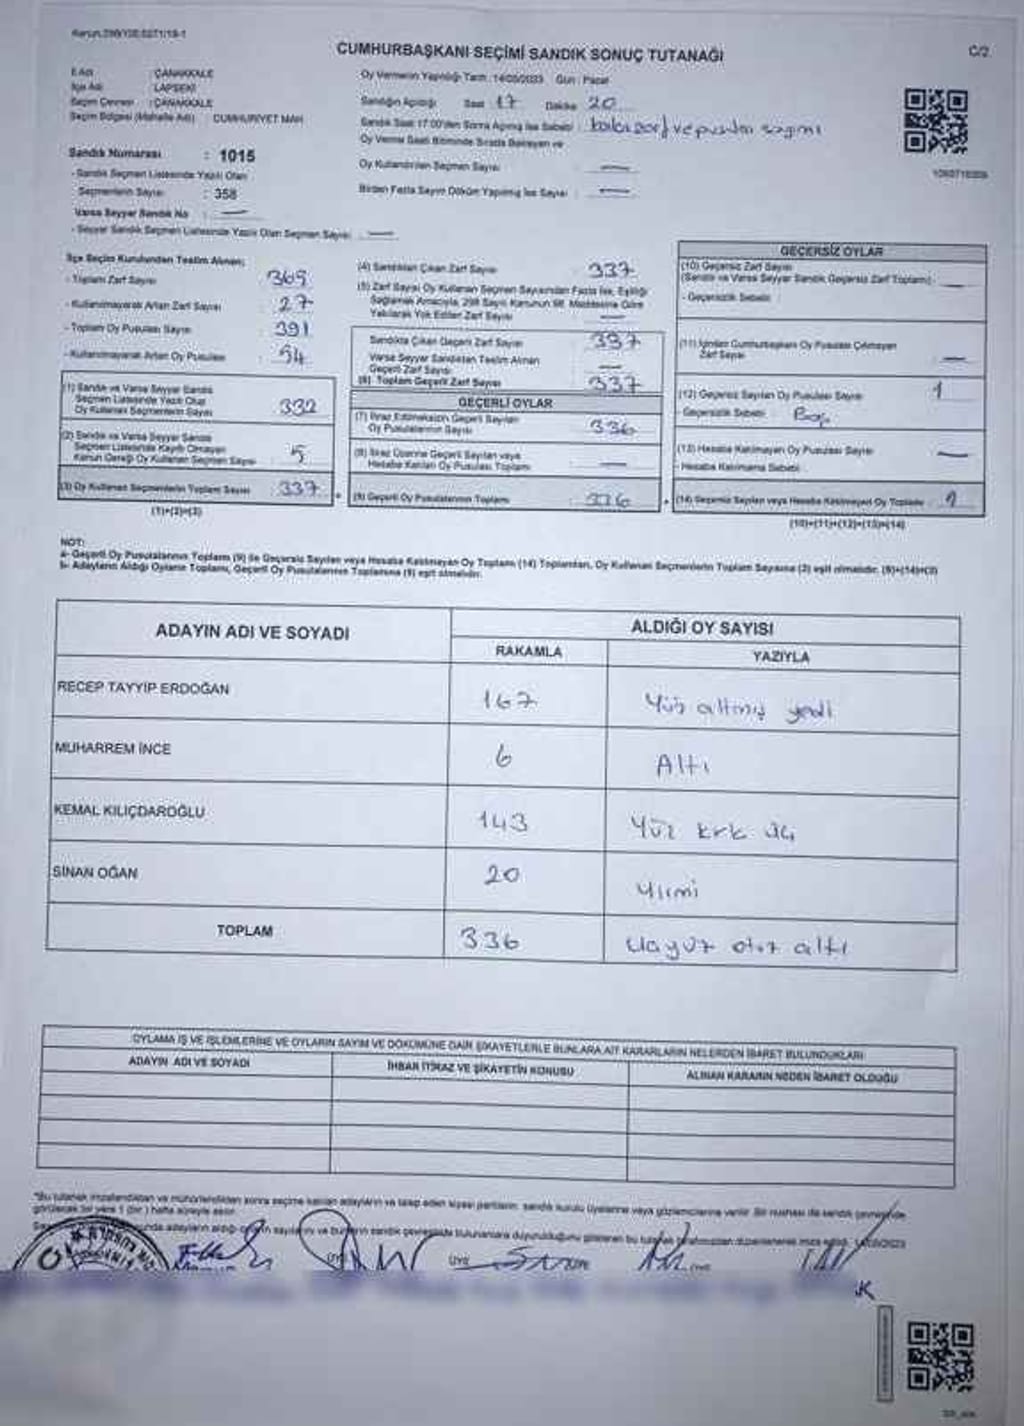 CUMHURBAŞKANI SEÇİMİ SANDIK SONUÇ TUTANAĞI
C/2
İl Adı : ÇANAKKALE
İlçe Adı : LAPSEKİ
Seçim Çevresi : ÇANAKKALE
Seçim Bölgesi (Mahalle Adı) : CUMHURİYET MAH
Sandık Numarası : 1015
- Sandık Seçmen Listesinde Yazılı Olan
Seçmenlerin Sayısı : 358
Varsa Seyyar Sandık No : —
- Seyyar Sandık Seçmen Listesinde Yazılı Olan Seçmen Sayısı : —
Oy Vermenin Yapıldığı Tarih : 14/05/2023 Gün : Pazar
Sandığın Açıldığı Saat 17 Dakika 20
Sandık Saat 17:00'den Sonra Açılmış İse Sebebi :
Oy Verme Saati Bitiminde Sırada Bekleyen ve
Oy Kullandırılan Seçmen Sayısı : —
Birden Fazla Sayım Döküm Yapılmış İse Sayısı : —
İlçe Seçim Kurulundan Teslim Alınan;
- Toplam Zarf Sayısı : 369
- Kullanılmayarak Artan Zarf Sayısı : 27
- Toplam Oy Pusulası Sayısı : 391
- Kullanılmayarak Artan Oy Pusulası : 54
(1) Sandık ve Varsa Seyyar Sandık
Seçmen Listesinde Yazılı Olup
Oy Kullanan Seçmenlerin Sayısı : 332
(2) Sandık ve Varsa Seyyar Sandık
Seçmen Listesinde Kayıtlı Olmayan
Kanun Gereği Oy Kullanan Seçmen Sayısı : 5
(3) Oy Kullanan Seçmenlerin Toplam Sayısı : 337
(1)+(2)=(3)
(4) Sandıktan Çıkan Zarf Sayısı : 337
(5) Zarf Sayısı Oy Kullanan Seçmen Sayısından Fazla İse, Eşitliği
Sağlamak Amacıyla, 298 Sayılı Kanunun 98. Maddesine Göre
Yakılarak Yok Edilen Zarf Sayısı : —
Sandıkta Çıkan Geçerli Zarf Sayısı : 337
Varsa Seyyar Sandıktan Teslim Alınan
Geçerli Zarf Sayısı : —
(6) Toplam Geçerli Zarf Sayısı : 337
GEÇERLİ OYLAR
(7) İtiraz Edilmeksizin Geçerli Sayılan
Oy Pusulalarının Sayısı : 336
(8) İtiraz Üzerine Geçerli Sayılan veya
Hesaba Katılan Oy Pusulası Toplamı : —
(9) Geçerli Oy Pusulalarının Toplamı : 336
GEÇERSİZ OYLAR
(10) Geçersiz Zarf Sayısı
(Sandık ve Varsa Seyyar Sandık Geçersiz Zarf Toplamı) : —
- Geçersizlik Sebebi :
(11) İçinden Cumhurbaşkanı Oy Pusulası Çıkmayan
Zarf Sayısı : —
(12) Geçersiz Sayılan Oy Pusulası Sayısı : 1
- Geçersizlik Sebebi : Boş
(13) Hesaba Katılmayan Oy Pusulası Sayısı : —
- Hesaba Katılmama Sebebi :
(14) Geçersiz Sayılan veya Hesaba Katılmayan Oy Toplamı : 1
(10)+(11)+(12)+(13)=(14)
NOT:
a- Geçerli Oy Pusulalarının Toplamı (9) ile Geçersiz Sayılan veya Hesaba Katılmayan Oy Toplamı (14) Toplamları, Oy Kullanan Seçmenlerin Toplam Sayısına (3) eşit olmalıdır. (9)+(14)=(3)
b- Adayların Aldığı Oyların Toplamı, Geçerli Oy Pusulalarının Toplamına (9) eşit olmalıdır.
ADAYIN ADI VE SOYADI
ALDIĞI OY SAYISI
RAKAMLA YAZIYLA
RECEP TAYYİP ERDOĞAN 167 Yüz altmış yedi
MUHARREM İNCE 6 Altı
KEMAL KILIÇDAROĞLU 143 Yüz kırk üç
SİNAN OĞAN 20 Yirmi
TOPLAM 336 Üçyüz otuz altı
OYLAMA İŞ VE İŞLEMLERİNE VE OYLARIN SAYIM VE DÖKÜMÜNE DAİR ŞİKAYETLERLE BUNLARA AİT KARARLARIN NELERDEN İBARET BULUNDUKLARI
ADAYIN ADI VE SOYADI İHBAR İTİRAZ VE ŞİKAYETİN KONUSU ALINAN KARARIN NEDEN İBARET OLDUĞU
*Bu tutanak imzalandıktan ve mühürlendikten sonra seçime katılan adayların ve talep eden siyasi partilerin sandık kurulu üyelerine veya gözlemcilerine verilir. Bir nüshası da sandık çevresinde
görülecek bir yere 1 (bir) hafta süreyle asılır.